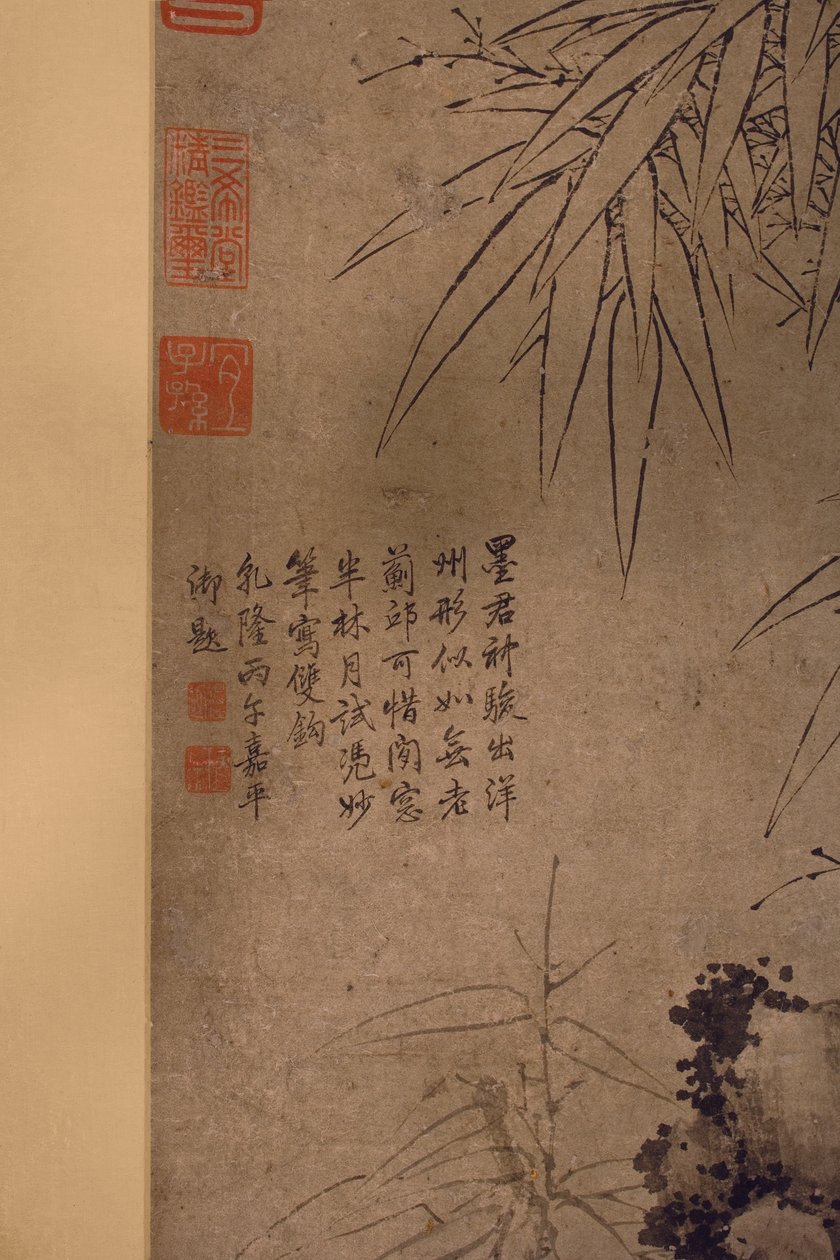 墨君神駿出洋
州形似如無老
薊邱可惜閒窓
半林月試憑妙
筆寫雙鈎
乾隆丙午嘉平
御題
三希堂
精鑑璽
宜
子孫